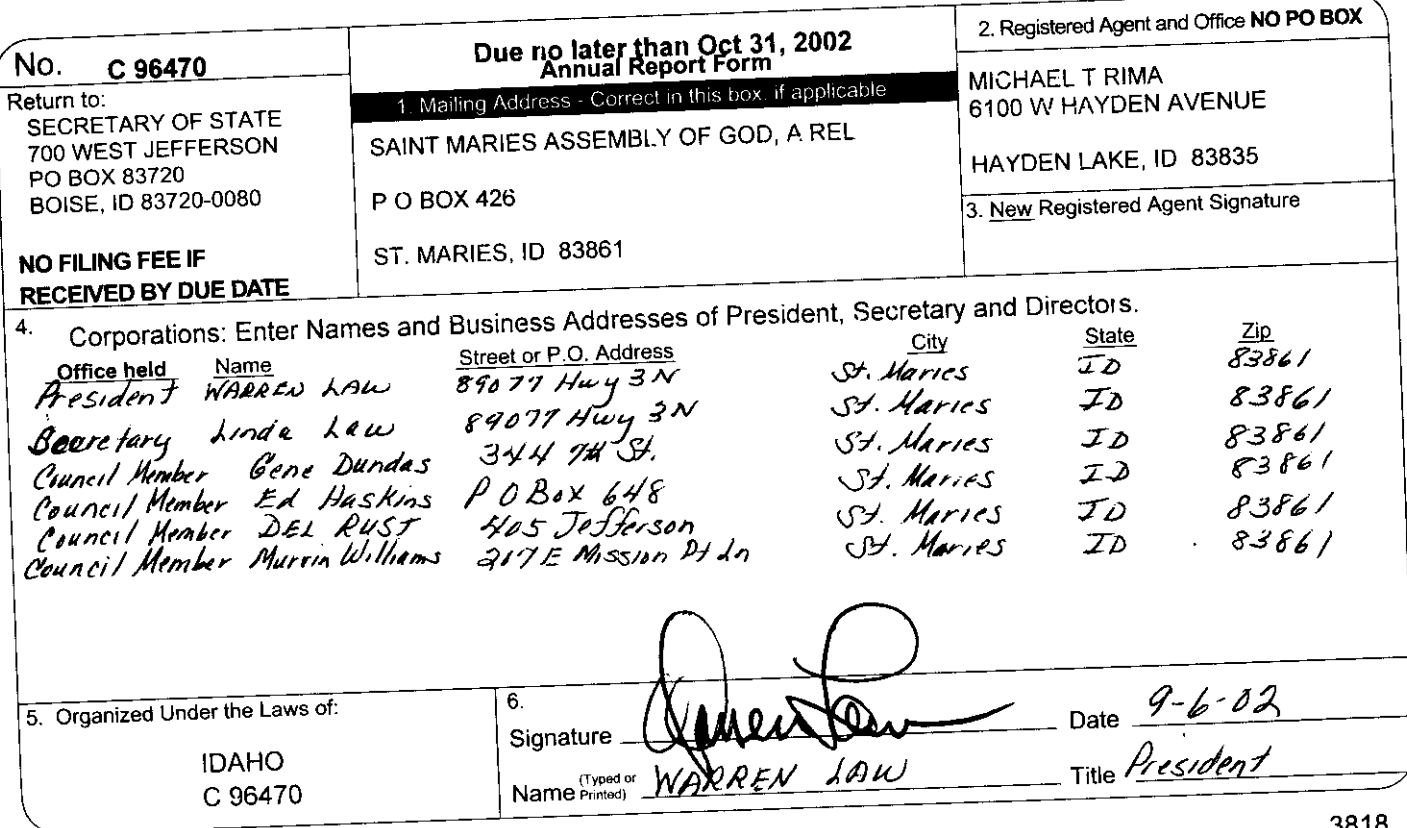 No. C 96470
Return to:
SECRETARY OF STATE
700 WEST JEFFERSON
PO BOX 83720
BOISE, ID 83720-0080
NO FILING FEE IF
RECEIVED BY DUE DATE
Due no later than Oct 31, 2002
Annual Report Form
1. Mailing Address - Correct in this box, if applicable
SAINT MARIES ASSEMBLY OF GOD, A REL
P O BOX 426
ST. MARIES, ID 83861
2. Registered Agent and Office NO PO BOX
MICHAEL T RIMA
6100 W HAYDEN AVENUE
HAYDEN LAKE, ID 83835
3. New Registered Agent Signature
4. Corporations: Enter Names and Business Addresses of President, Secretary and Directors.
Office held Name Street or P.O. Address City State Zip
President WARREN LAW 89077 Hwy 3N St. Maries ID 83861
Secretary Linda Law 89077 Hwy 3N St. Maries ID 83861
Council Member Gene Dundas 344 7th St. St. Maries ID 83861
Council Member Ed Haskins P O Box 648 St. Maries ID 83861
Council Member DEL RUST 405 Jefferson St. Maries ID 83861
Council Member Murrin Williams 217 E Mission Pt Ln St. Maries ID 83861
5. Organized Under the Laws of:
IDAHO
C 96470
6.
Signature Warren Law Date 9-6-02
Name (Typed or Printed) WARREN LAW Title President
3818